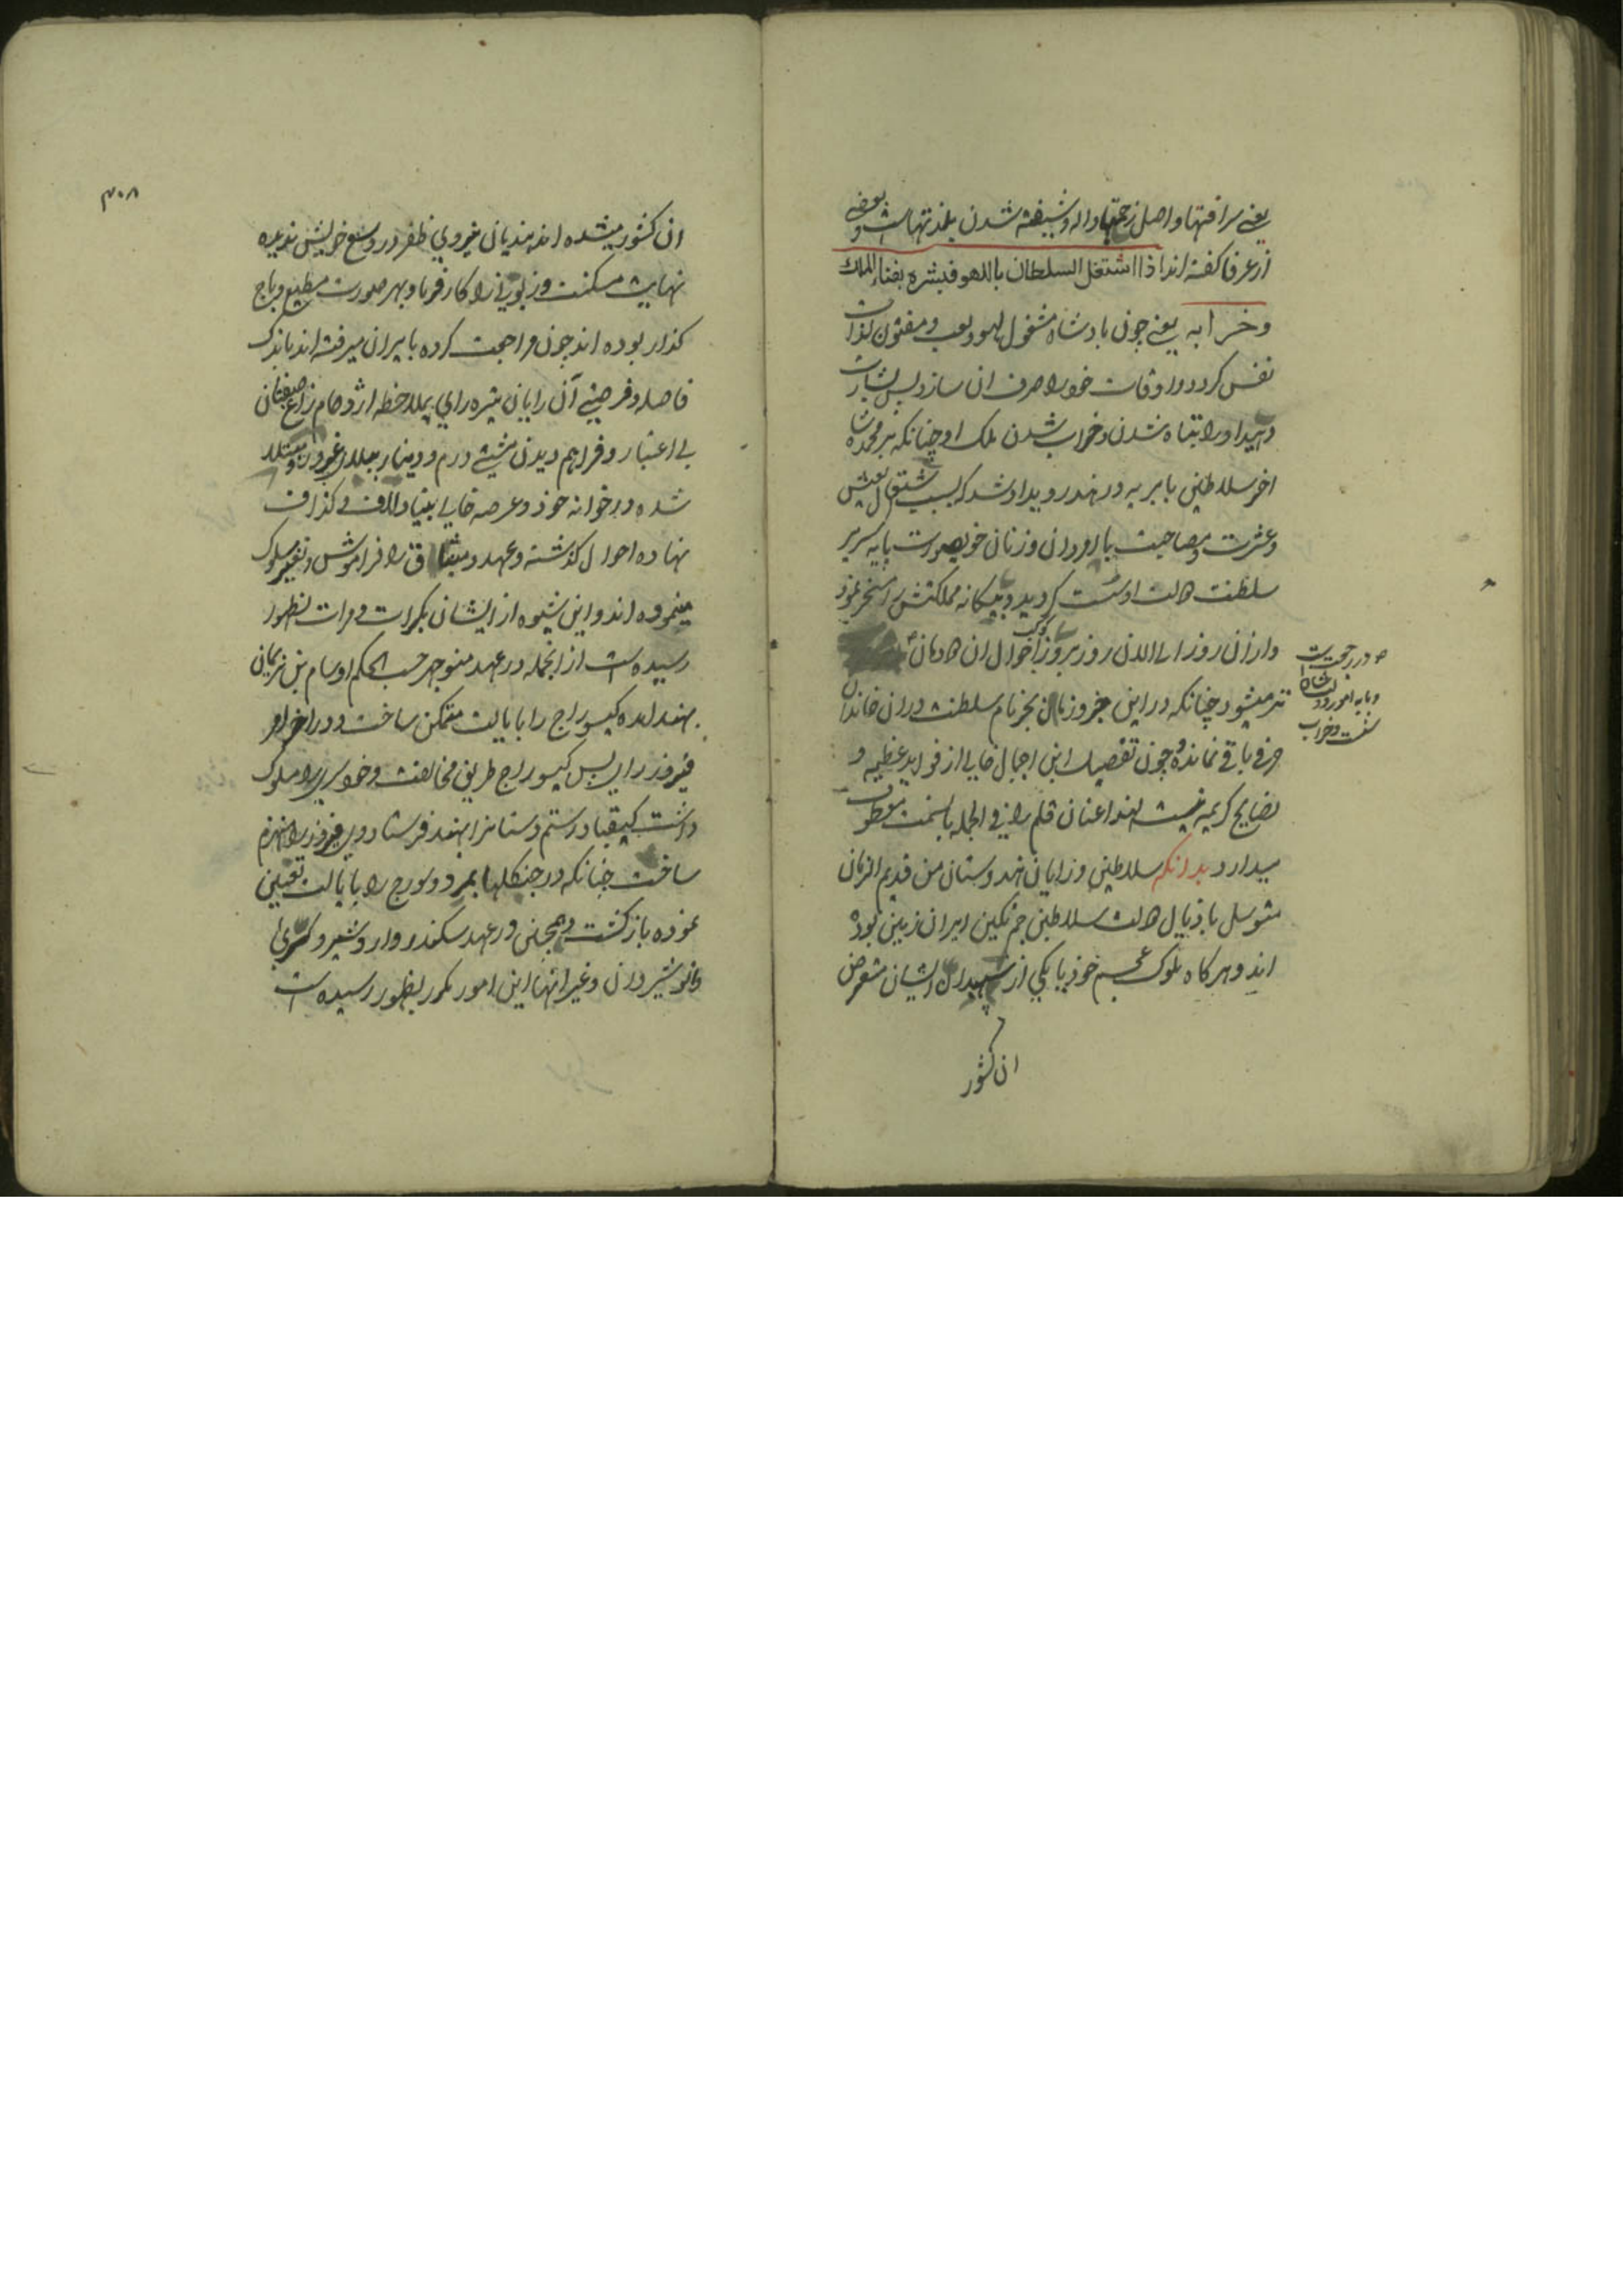 یعنی سر افتها و اصل زحمتها واله و شیفته شدن بلذتهاست و بعضی
از عرفا کفته اند اذا اشتغل السلطان باللهو فبشره بفناء الملک
وخرابه یعنی چون بادشاه مشغول لهو ولعب ومفتون لذات
نفس کردد و اوقات خود را صرف ان سازد پس بشارت
دهید او را بتباه شدن و خراب شدن ملک او چنانکه بر محمد شاه
اخر سلاطین بابریه در هند رویداد شد که بسبب اشتغال بعیش
وعشرت ومصاحبت با امردان و زنان خوبصورت پایه سریر
سلطنت اش سست کردید و بیکانه مملکتش را مسخر نمود
وازان روز الی الان روز بروز احوال ان دودمان
تر میشود چنانکه در این جزو زمان بجز نام سلطنت در ان خاندان
حرفی باقی نمانده و چون تفصیل این اجمال خالی از فواید عظیمه و
نصایح کریمه نیست لهذا عنان قلم را فی الجمله بآنسمت معطوف
میدارد بدانکه سلاطین و رایان هندوستان من قدیم الزمان
متوسل باذیال سلاطین جم نکین ایران زمین بوده
اند و هرکاه ملوک عجم خود یا یکی از سپهبدان ایشان متعرض
ان کشور
۳۰۸
ان کشور میشده اند هندیان نیروی ظفر در وسع خویش ندیده
نهایت مسکنت و زبونی را کارفرما و بهر صورت مطیع و باج
کذار بوده اند چون مراجعت کرده بایران میرفته اند باندک
فاصله و فرصتی آن رایان تیره رای بملاحظه ازدحام زاغ صفتان
بی اعتبار و فراهم دیدن مشتی درم و دینار مبتلا
شده در خوانه خود و عرصه خالی بنیاد لاف و کذاف
نهاده احوال کذشته و عهد و میثاق را فراموش و تغییر سلوک
مینموده اند و این شیوه از ایشان بکرات و مرات بظهور
رسیده است از انجمله در عهد منوچهر حسب الحکم او سام بن نریمان
بهند امده کیسوراج را بایالت متمکن ساخت و در اخر امر
فیروز رای پس کیسوراج طریق مخالفت و خود سری را مسلوک
داشت کیقباد رستم دستانرا بهند فرستاد وی فیروز را منهزم
ساخت چنانکه در جنکلها بمرد و سورج را بایالت تعیین
نموده بازکشت و همچنین در عهد سکندر و اردشیر و کسری
انوشیروان و غیر انها این امور مکرر بظهور رسیده است